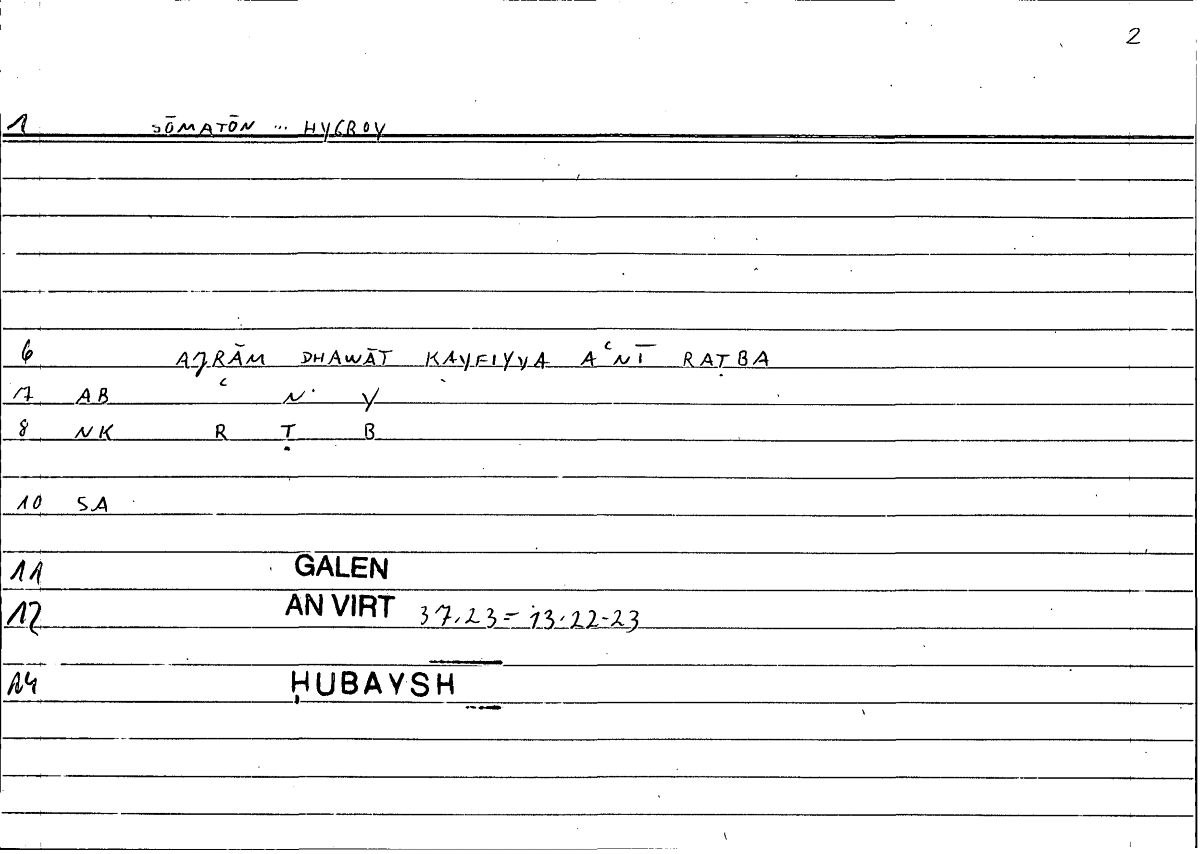 2
1 SŌMATŌN ... HYGROY
6 AJRĀM DHAWĀT KAYFIYYA AʿNĪ RAṬBA
7 AB ʿ N Y
8 NK R Ṭ B
10 SA
11 GALEN
12 AN VIRT 37.23 = 13.22-23
14 ḤUBAYSH